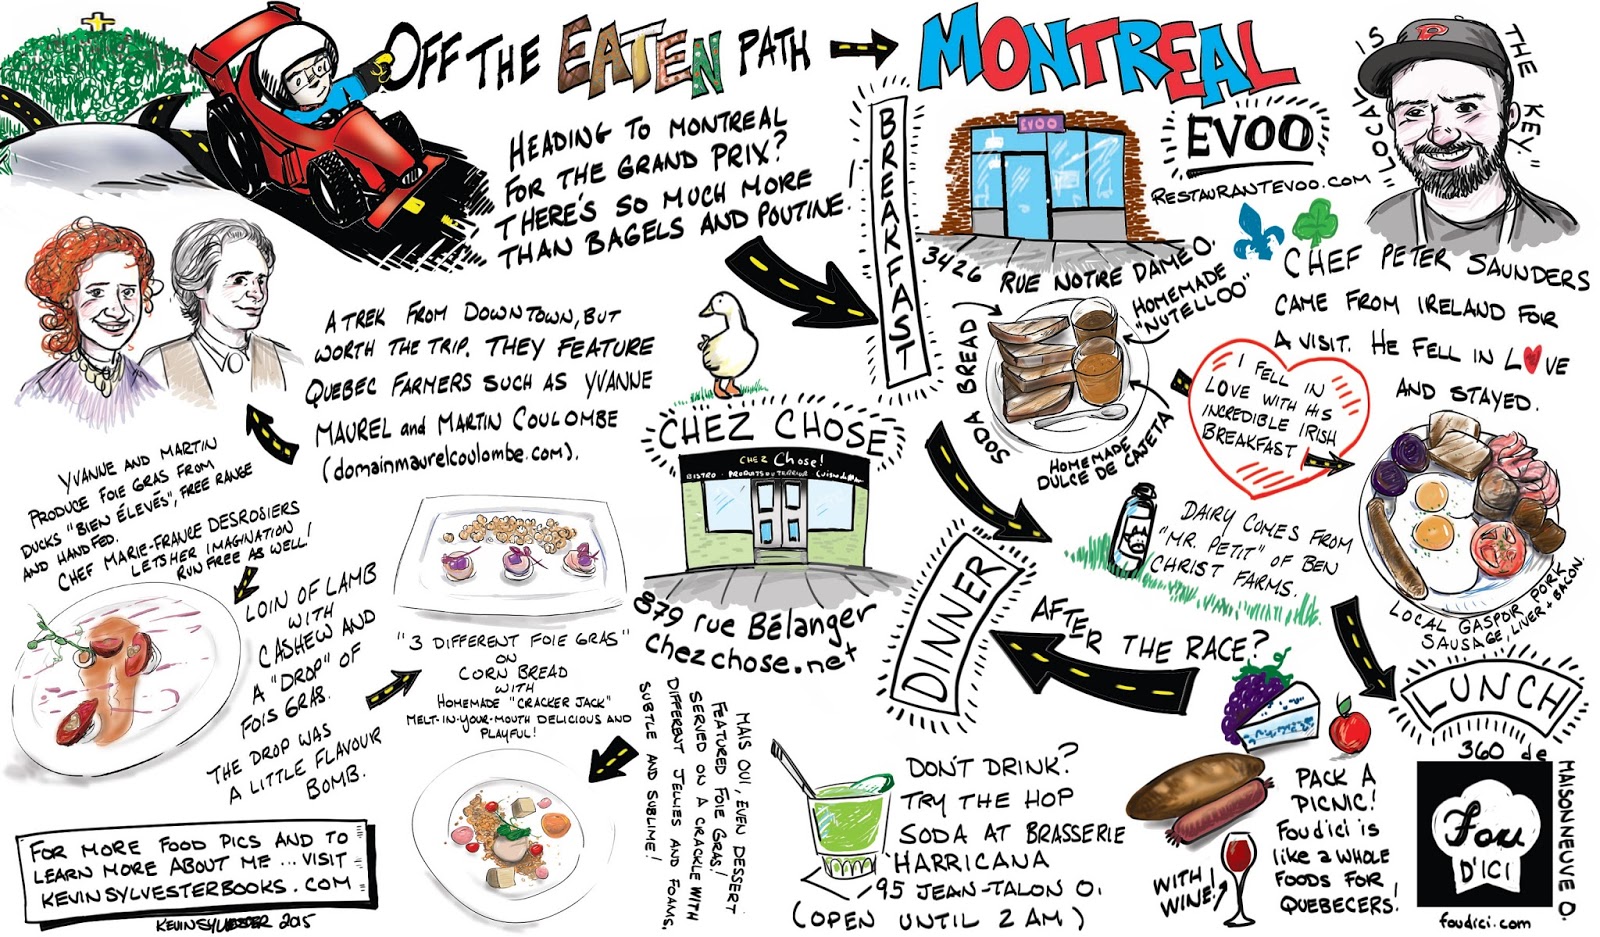 OFF THE EATEN PATH
MONTREAL
HEADING TO MONTREAL
FOR THE GRAND PRIX?
THERE'S SO MUCH MORE
THAN BAGELS AND POUTINE!
BREAKFAST
EVOO
EVOO
RESTAURANTEVOO.COM
3426 RUE NOTRE DAME O.
"LOCAL IS THE KEY."
P
CHEF PETER SAUNDERS
CAME FROM IRELAND FOR
A VISIT. HE FELL IN LOVE
AND STAYED.
SODA BREAD
HOMEMADE
"NUTELLOO"
HOMEMADE
DULCE DE CAJETA
I FELL IN
LOVE WITH HIS
INCREDIBLE IRISH
BREAKFAST
DAIRY COMES FROM
"MR. PETIT" OF BEN
CHRIST FARMS.
LOCAL GASPOR PORK
SAUSAGE, LIVER + BACON.
LUNCH
360 de
MAISONNEUVE O.
Fou
D'ICI
foudici.com
PACK A
PICNIC!
FOUd'ici is
like a WHOLE
FOODS FOR
QUEBECERS!
WITH
WINE!
AFTER THE RACE?
DINNER
CHEZ CHOSE
CHEZ Chose!
BISTRO · PRODUITS DU TERROIR
879 rue Bélanger
chezchose.net
A TREK FROM DOWNTOWN, BUT
WORTH THE TRIP. THEY FEATURE
QUEBEC FARMERS SUCH AS YVANNE
MAUREL and MARTIN COULOMBE
(domainmaurelcoulombe.com).
YVANNE AND MARTIN
PRODUCE FOIE GRAS FROM
DUCKS "BIEN ÉLEVÉS", FREE RANGE
AND HAND FED.
CHEF MARIE-FRANCE DESROSIERS
LETS HER IMAGINATION
RUN FREE AS WELL!
LOIN OF LAMB
WITH
CASHEW AND
A "DROP" OF
FOIS GRAS.
THE DROP WAS
A LITTLE FLAVOUR
BOMB.
"3 DIFFERENT FOIE GRAS"
ON
CORN BREAD
WITH
HOMEMADE "CRACKER JACK"
MELT-IN-YOUR-MOUTH DELICIOUS AND
PLAYFUL!
MAIS OUI, EVEN DESSERT
FEATURED FOIE GRAS!
SERVED ON A CRACKLE WITH
DIFFERENT JELLIES AND FOAMS.
SUBTLE AND SUBLIME!
DON'T DRINK?
TRY THE HOP
SODA AT BRASSERIE
HARRICANA
95 JEAN-TALON O.
(OPEN UNTIL 2 AM)
FOR MORE FOOD PICS AND TO
LEARN MORE ABOUT ME ... VISIT
KEVINSYLVESTERBOOKS.COM
KEVIN SYLVESTER 2015